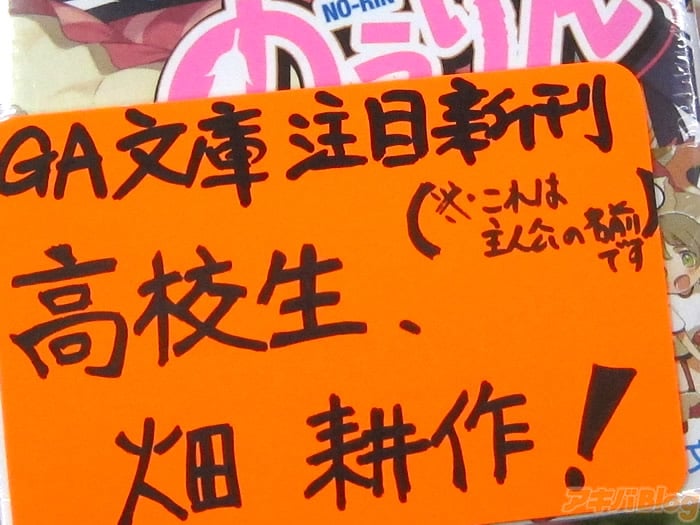 NO-RIN
のうりん
GA文庫 注目新刊
(※これは
主人公の名前
です)
高校生、
畑 耕作!
アキバBlog